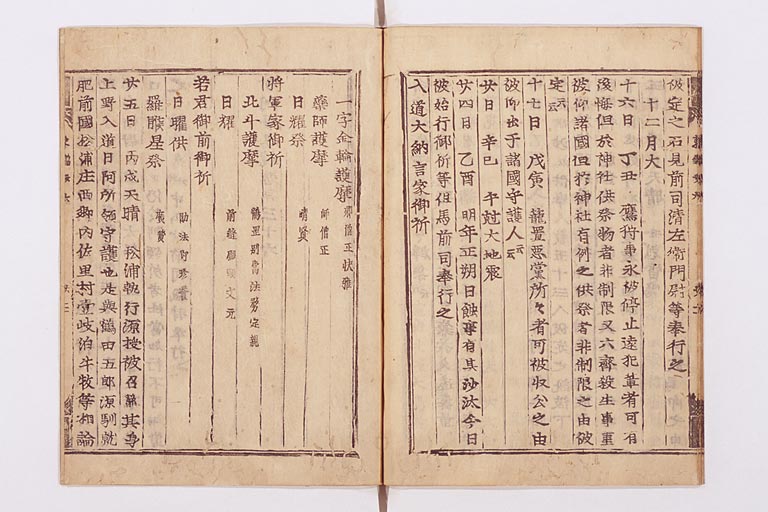 彼是之石見前司清左衛門尉等奉行之
十二月大
十六日 丁丑 鷹狩事永被停止違犯輩者可有
後悔但於神社供祭物者非制限又六齋殺生事重
被仰諸國但於神社有例之供祭者非制限之由被
定云云
十七日 戊寅 籠置悪黨所々者可被収公之由
被仰出于諸國守護人云云
廿日 辛巳 午尅大地震
廿四日 乙酉 明年正朔日蝕事有其沙汰今日
被始行御祈等但馬前司奉行之
入道大納言家御祈
一字金輪護摩
藥師護摩 師僧正
日曜祭 晴賢
將軍家御祈
北斗護摩 鶴岡別當法勞定親
日曜 前
若君御前御祈
日曜供 助法印珍譽
羅睺星祭 廣資
廿五日 丙戌天晴 松浦執行源授被召籠其身
上野入道日阿所領守護也是與鶴田五郎源馴就
肥前國松浦庄西郷内佐里村壹岐泊牛牧等相論